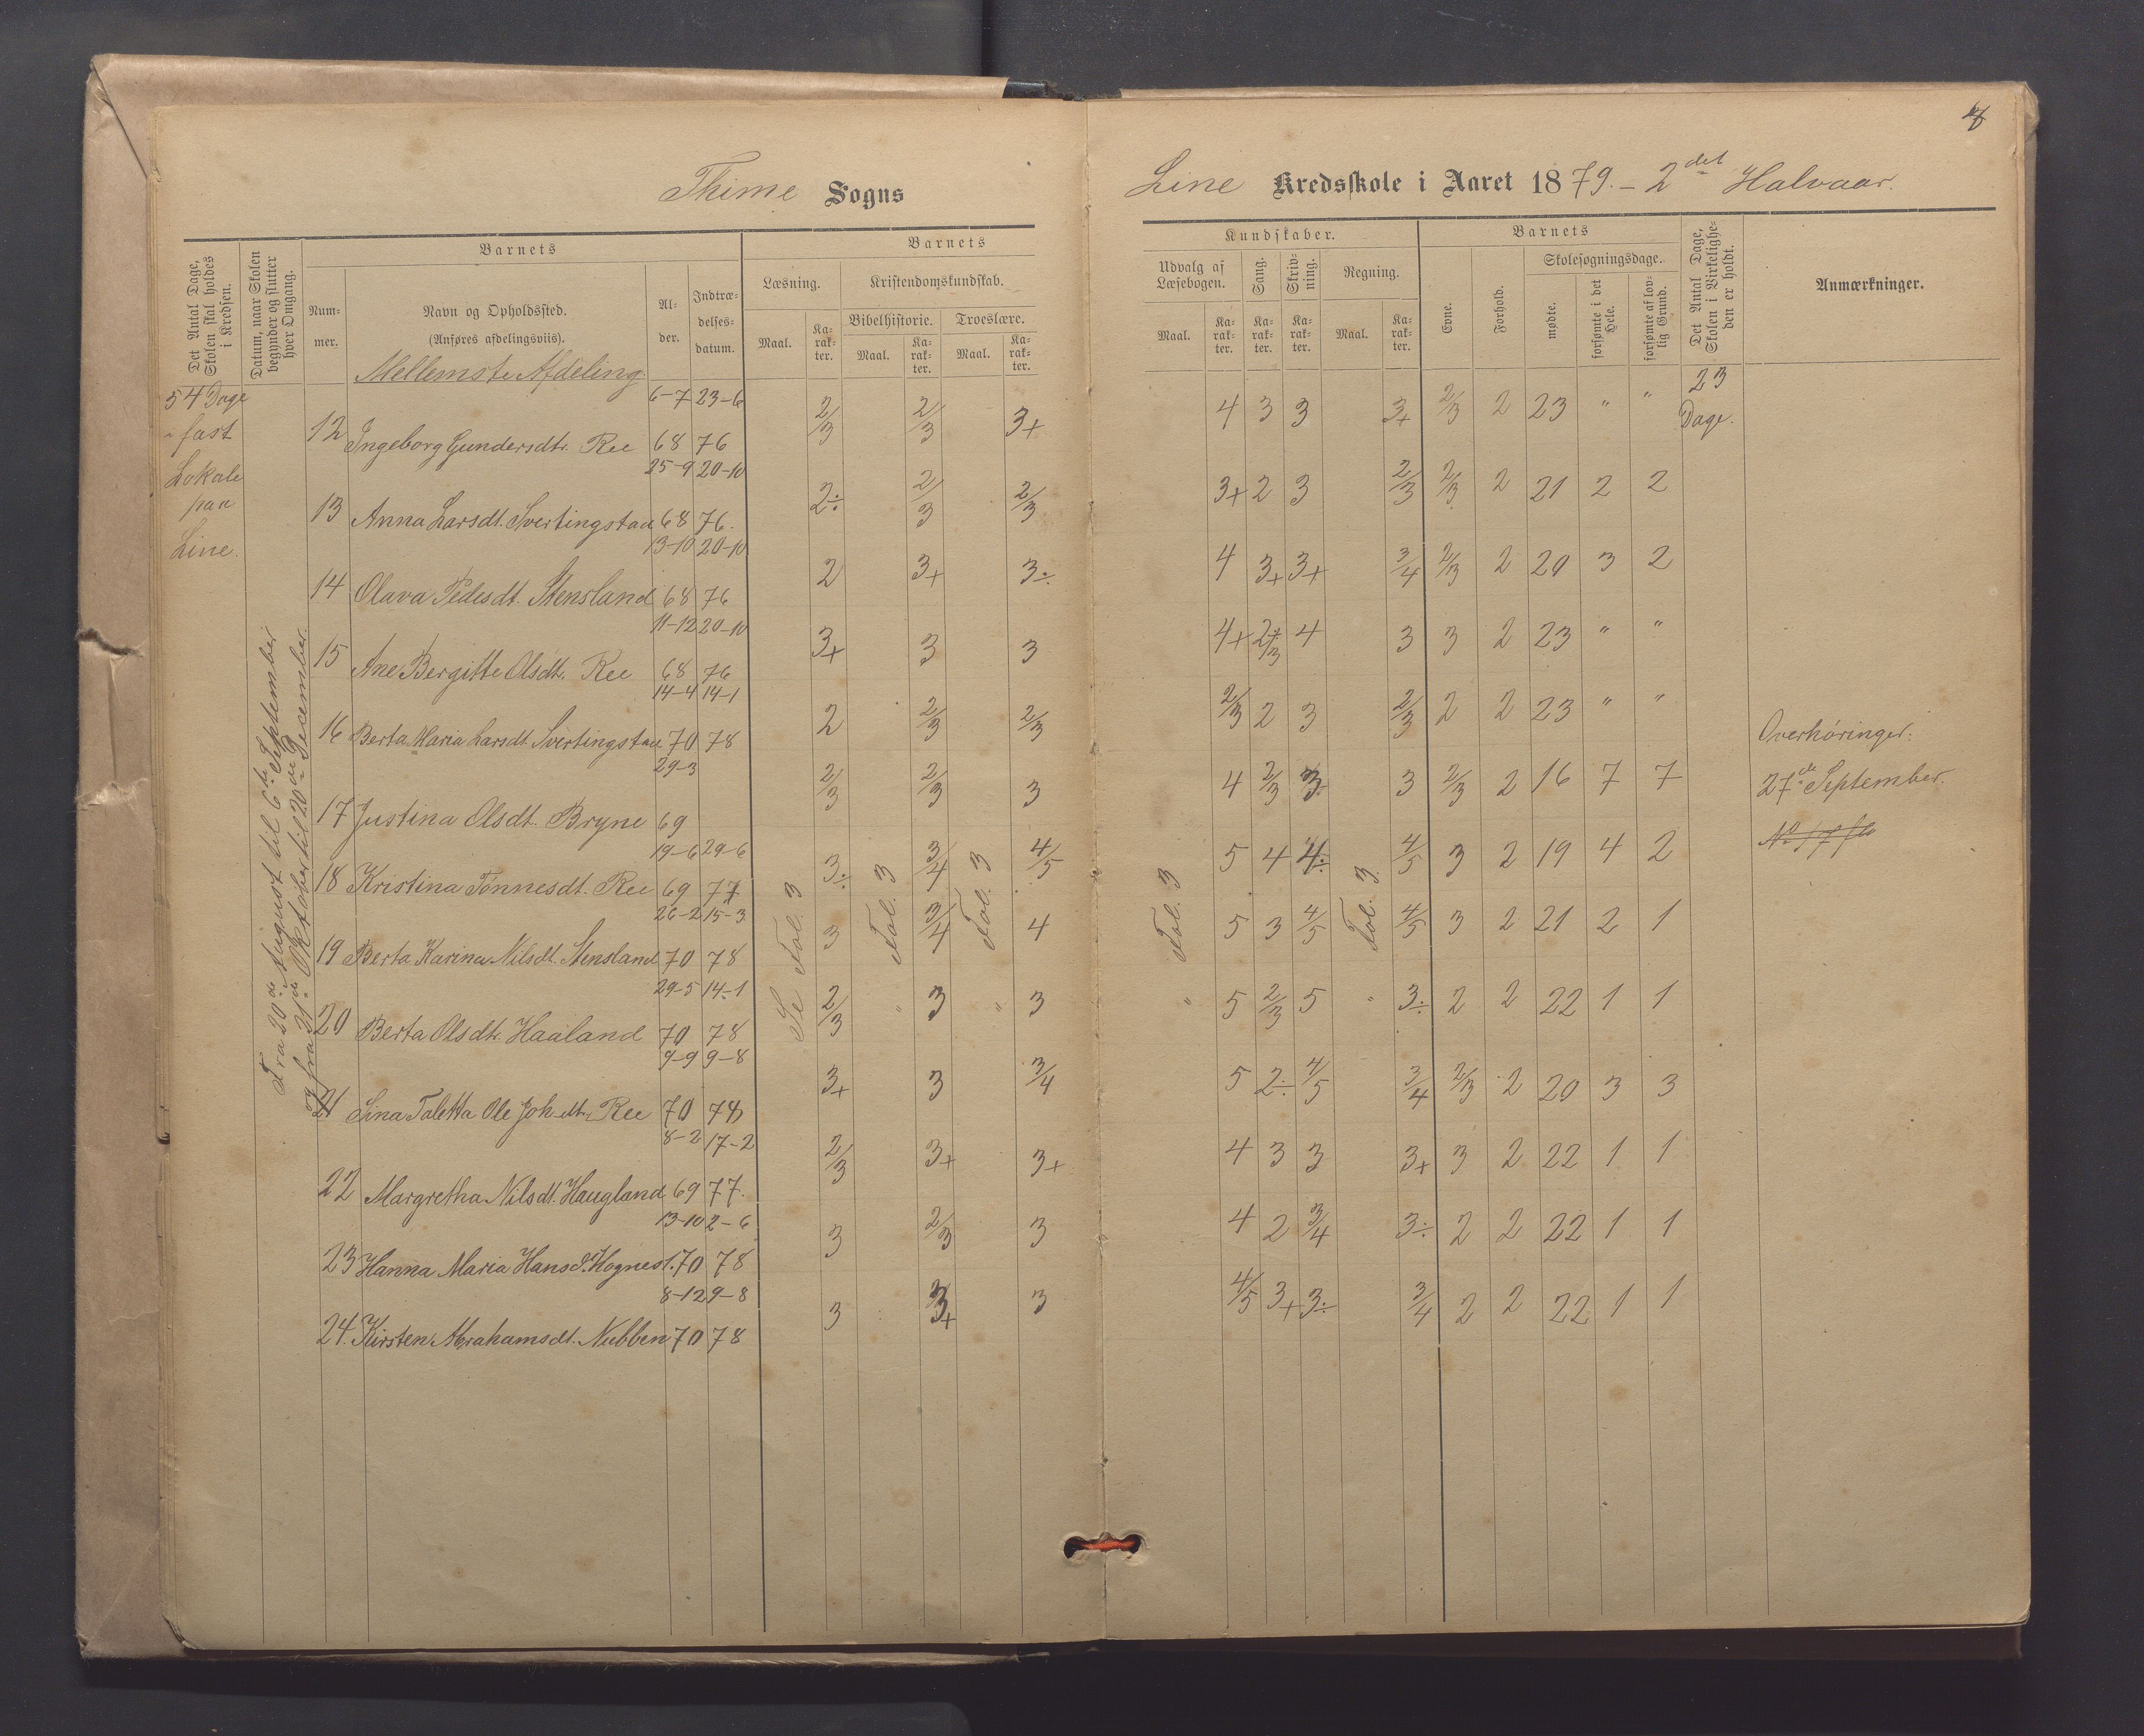 Thime Sogns
Line Kredsskole i Aaret 1879. – 2det Halvaar.
Det Antal Dage, Skolen skal holdes i Kredsen.
Datum, naar Skolen begynder og slutter hver Omgang.
Barnets
Num-mer.
Navn og Opholdssted.
(Anføres afdelingsviis).
Al-der.
Indtræ-delses-datum.
Barnets
Læsning.
Kristendomskundskab.
Bibelhistorie. Troeslære.
Maal. Ka-rak-ter. Maal. Ka-rak-ter. Maal. Ka-rak-ter.
Kundskaber.
Udvalg af Læsebogen.
Sang.
Skriv-ning.
Regning.
Maal. Ka-rak-ter. Ka-rak-ter. Ka-rak-ter. Maal. Ka-rak-ter.
Barnets
Evne.
Forhold.
Skolesøgningsdage.
mødte.
forsømte i det Hele.
forsømte af lov-lig Grund.
Det Antal Dage, Skolen i Virkelighe-den er holdt.
Anmærkninger.
Mellemste Afdeling
54 Dage
fast
Lokale
paa
Line.
Fra 20de August til 6te September
og fra 21de Oktober til 20de December.
6–7 23–6
12 Ingeborg Gundersdtr. Ree 68 76 2/3 2/3 3+ 4 3 3 3+ 2/3 2 23 " " 23 Dage.
25–9 20–10
13 Anna Larsdt. Svertingstad 68 76. 2÷ 2/3 2/3 3+ 2 3 2/3 2/3 2 21 2 2
13–10 20–10
14 Olava Pedesdt. Stensland 68 76 2 3+ 3÷ 4 3+ 3+ 3/4 2/3 2 20 3 2
11–12 20–10
15 Ane Bergitte Olsdt. Ree 68 76 3+ 3 3 4+ 2/3 4 3 3 2 23 " "
14–4 14–1
16 Berta Maria Larsdt. Svertingstad 70 78 2 2/3 2/3 2/3 2 3 2/3 2 2 23 " "
29–3
17 Justina Olsdt. Bryne 69 2/3 2/3 3 4 2/3 3 3 2/3 2 16 7 7
19–6 29–6
18 Kristina Tønnesdt. Ree 69 77 3÷ 3/4 4/5 5 4 4÷ 4/5 3 2 19 4 2
26–2 15–3
19 Berta Karina Nilsdt. Stensland 70 78 3 3/4 4 5 3 4/5 4/5 3 2 21 2 1
29–5 14–1
20 Berta Olsdt. Haaland 70 78 2/3 " 3 " 3 " 5 2/3 5 " 3÷ 2 2 22 1 1
9–9 9–8
21 Sina Taletta Ole Joh.dtr. Ree 70 78 3+ 3 3/4 5 2÷ 4/5 3/4 2/3 2 20 3 3
8–2 17–2
22 Margretha Nilsdt. Haugland 69 77. 2/3 3+ 3+ 4 3 3 3+ 3 2 22 1 1
13–10 2–6
23 Hanna Maria Hansd. Hognest. 70 78 3 2/3 3 4 2 3/4 3÷ 2 2 22 1 1
8–12 9–8
24. Kirsten Abrahamsdt. Nubben 70 78 3 3+ 3 4/5 3+ 3÷ 3/4 2 2 22 1 1
Se Fol. 3
Fol. 3
Fol. 3
Fol. 3
Fol. 3.
Overhøringer:
27de September.